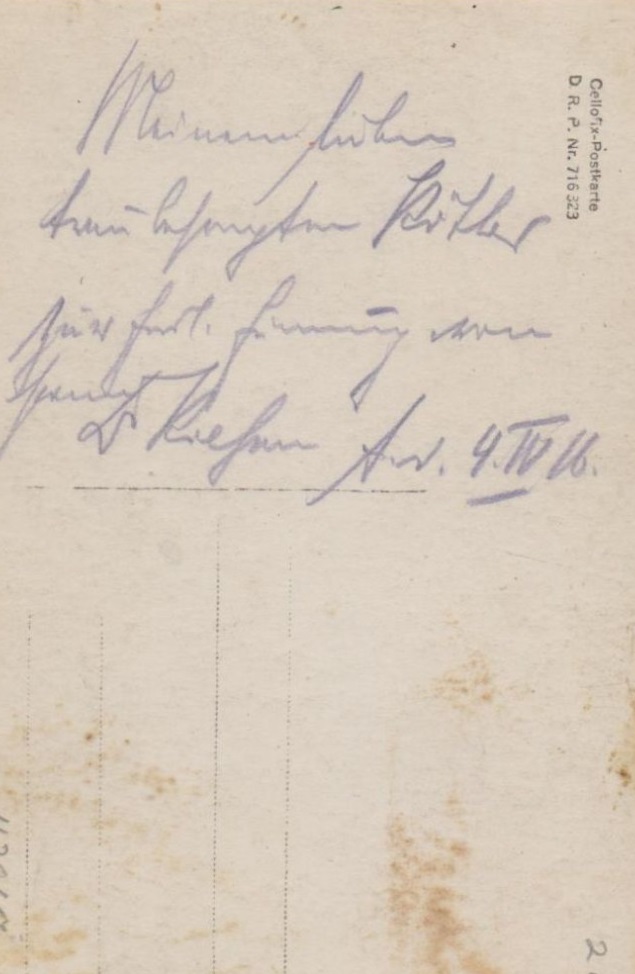 Meinem lieben
treu besorgten Köhler
zur frdl. Erinnerung von
Dr
4. IV 16.
Cellofix-Postkarte
D. R. P. Nr. 716 323
2